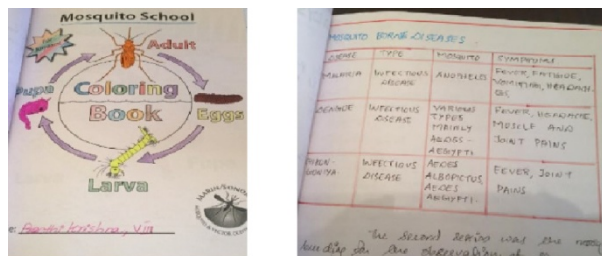 Mosquito School
Adult
Pupa
Coloring
Book
Eggs
Larva
MOSQUITO BORNE DISEASES.
DISEASE TYPE MOSQUITO SYMPTOMS
MALARIA INFECTIOUS DISEASE ANOPHELES FEVER, FATIGUE, VOMITING, HEADACHES
DENGUE INFECTIOUS DISEASE VARIOUS TYPES MAINLY AEDES - AEGYPTI FEVER, HEADACHE, MUSCLE AND JOINT PAINS
INFECTIOUS DISEASE AEDES ALBOPICTUS, AEDES AEGYPTI. FEVER, JOINT PAINS.
The second session was the
for the observation of